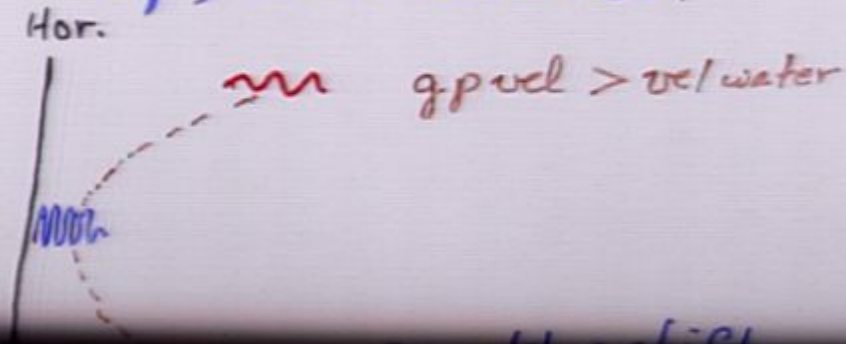 Hor.
gp vel > vel water